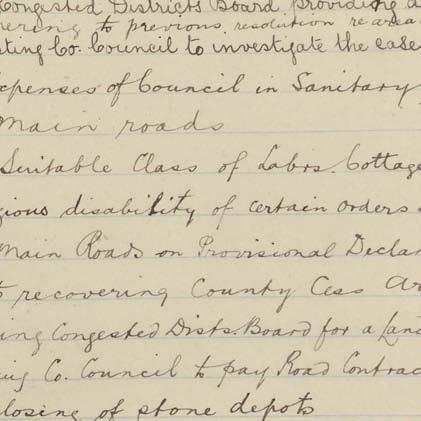 Congested Districts Board providing a
ering to previous resolution re area
sting Co. Council to investigate the case
xpenses of Council in Sanitary
Main roads
Suitable Class of Labrs. Cottage
gious disability of certain orders
Main Roads on Provisional Declar
to recovering County Cess Ar
ing Congested Dists. Board for a Land
ing Co. Council to pay Road Contrac
losing of stone depots